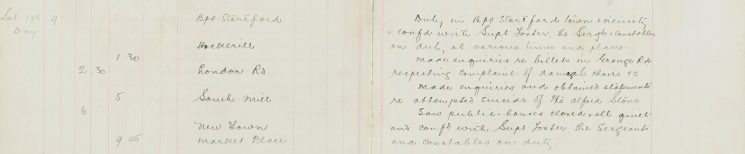 Sat 13th 9 Bps Stortford Duty in Bps Stortford town & vicinity
Day & conf'd with Supt Foster, the Sergts & Constables
Hockerill on duty at various times and places
1 30 made enquiries re billets in Grange Rd
2.30 London Rd respecting complaint of damage chairs &c
made enquiries and obtained statements
5 South Mill re attempted suicide of Alfred Stone
6 Saw public-houses closed & all quiet
New Town and conf'd with Supt Foster, the Sergeants
9 45 Market Place and Constables on duty.